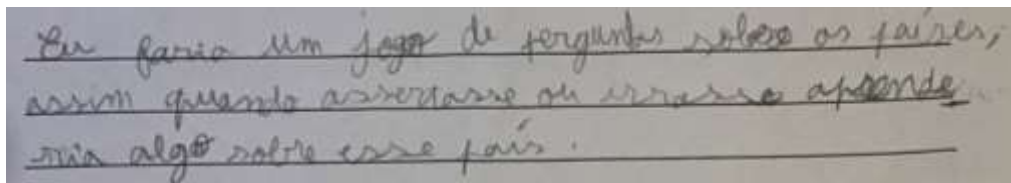 Eu faria um jogo de perguntas sobre os países,
assim quando assertasse ou errasse aprende
ria algo sobre esse país.